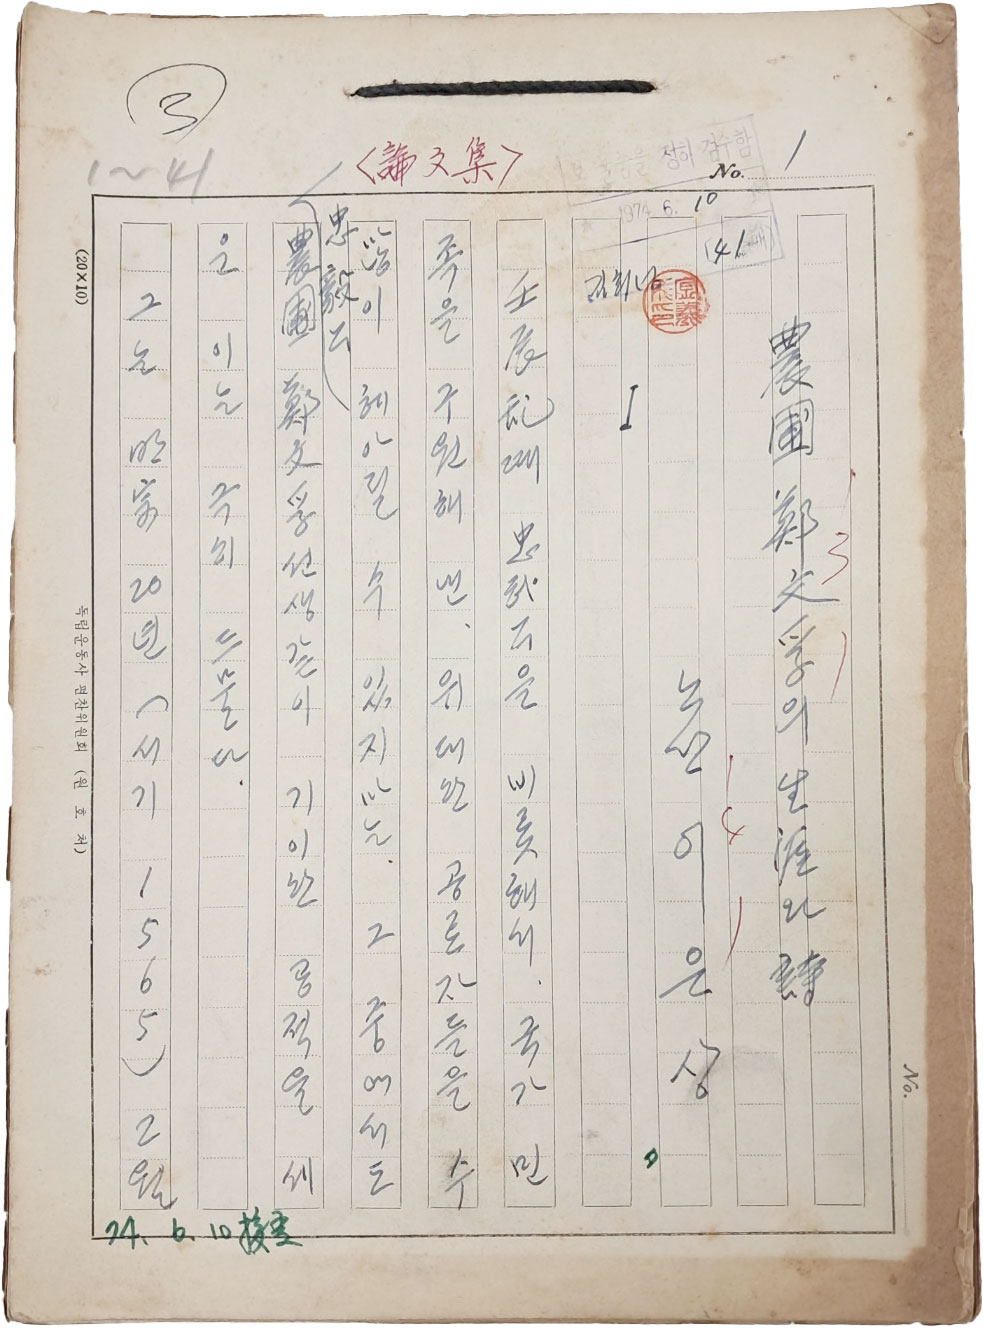 ③
1~41
<論文集>
No. 1
1974. 6. 10
41
農圃 鄭文孚의 生涯와 詩
3
노산 이은상
4
I
壬辰亂때 忠武公을 비롯해서, 국가 민
족을 구원해 낸, 위대한 공로자들을 수
많이 헤아릴 수 있지마는, 그 중에서도
忠毅公
農圃 鄭文孚선생같이 기이한 공적을 세
운 이는 극히 드물다.
그는 明宗 20년 (서기 1565) 2월
(20×10)
독립운동사 편찬위원회 (원호처)
74. 6. 10
No.